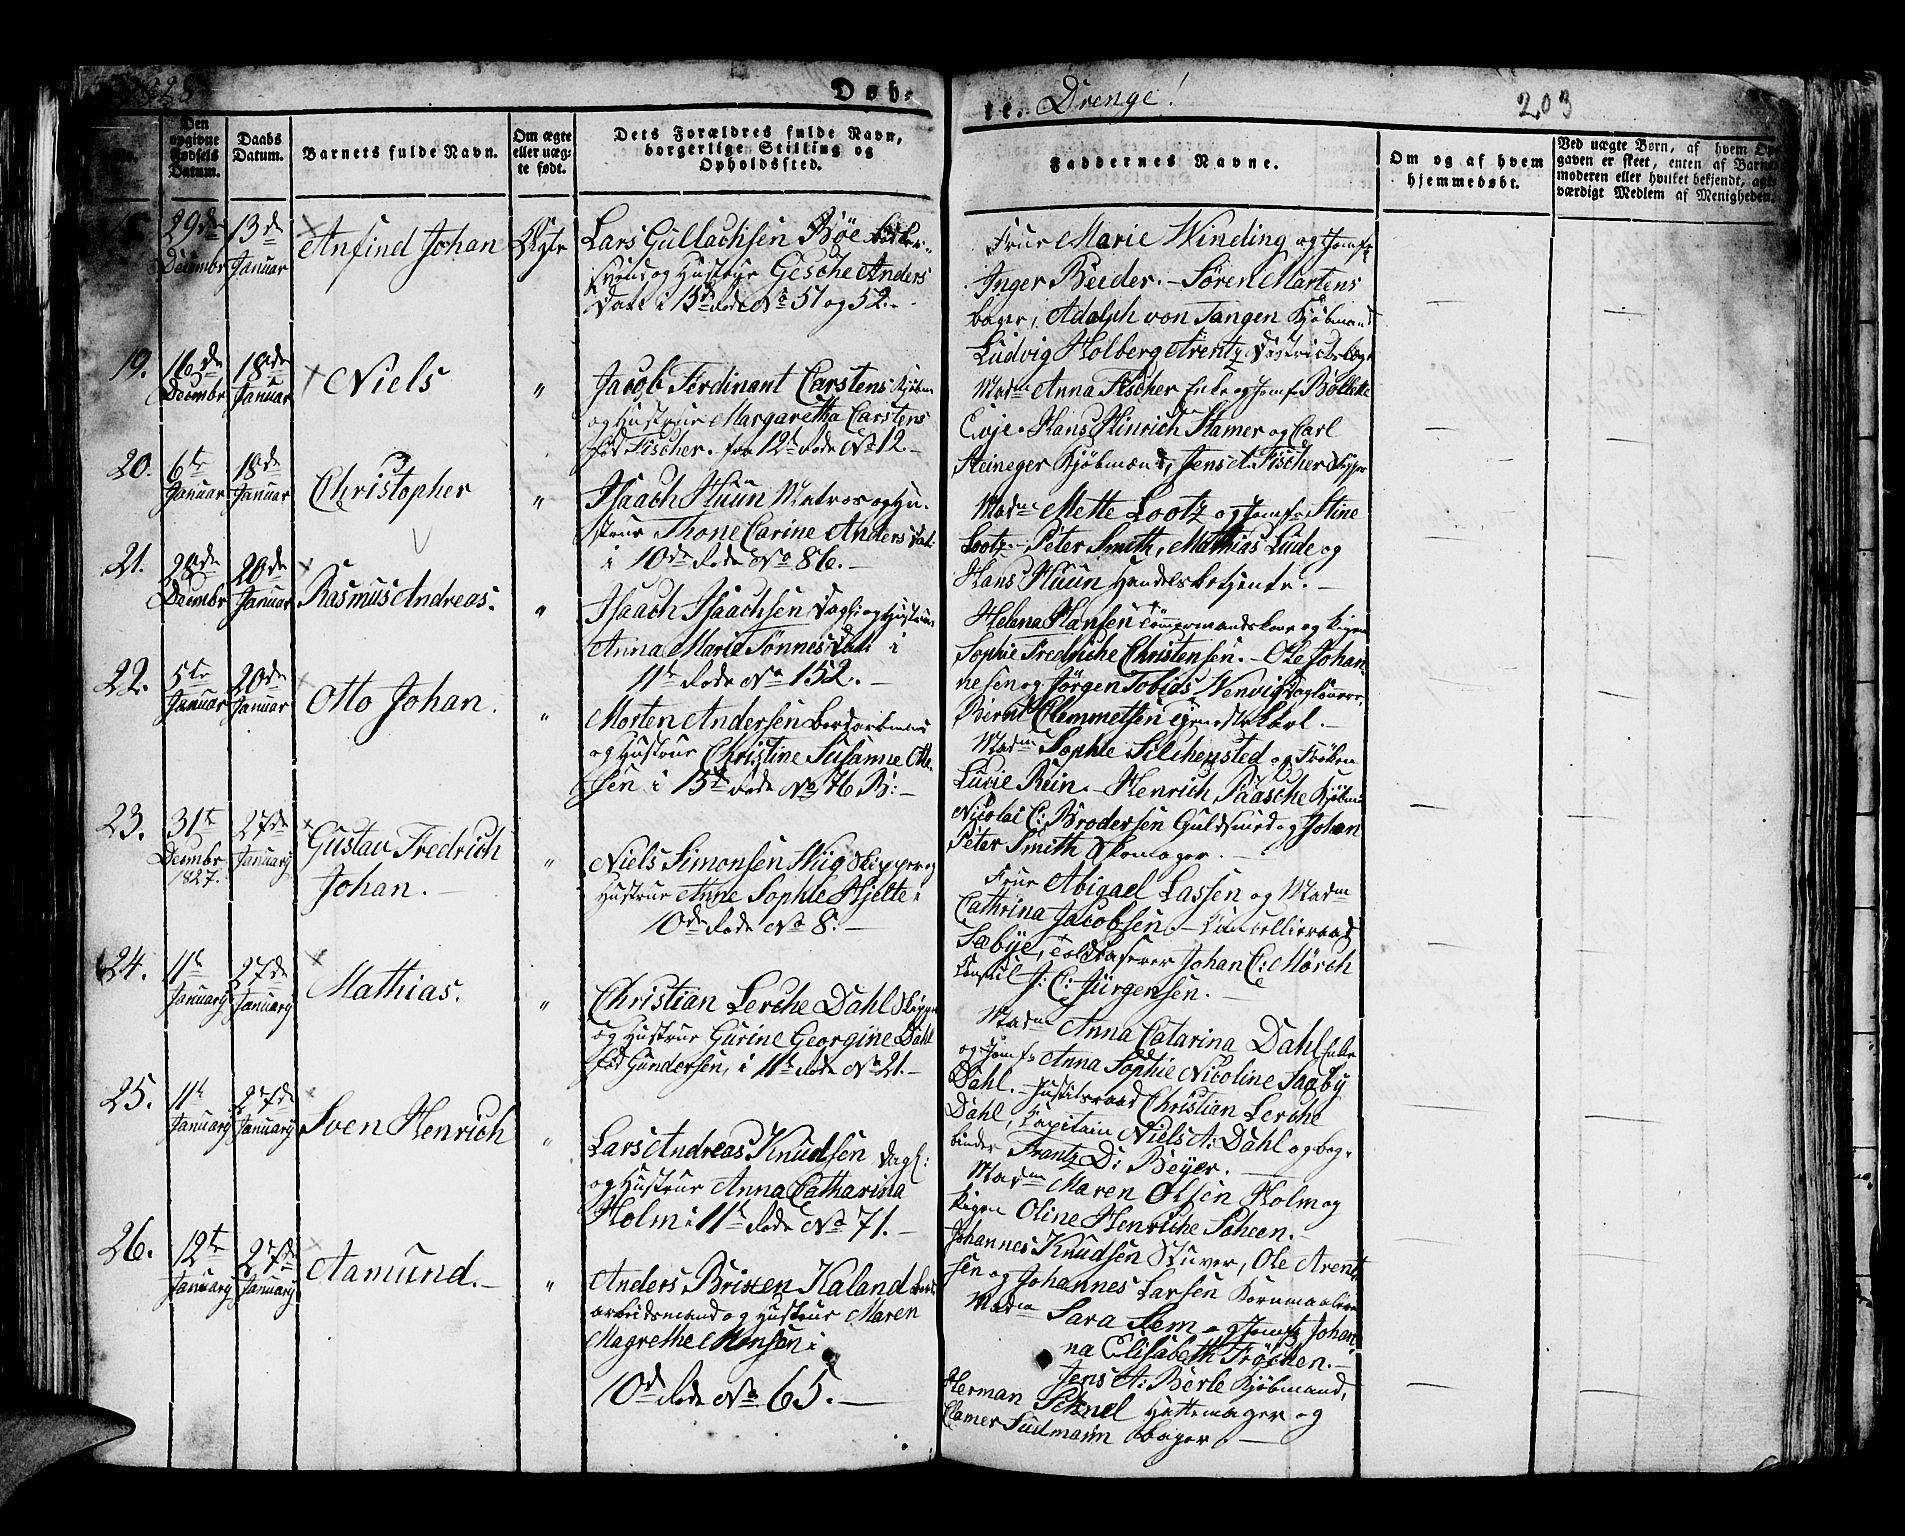 1828
Døb-
te. Drenge!
203
No.
Den opgivne Fødsels Datum.
Daabs Datum.
Barnets fulde Navn.
Om ægte eller uægte født.
Dets Forældres fulde Navn, borgerlige Stilling og Opholdssted.
Faddernes Navne.
Om og af hvem hjemmedøbt.
Ved uægte Børn, af hvem Opgaven er skeet, enten af Barnemoderen eller hvilket bekjendt, agtværdigt Medlem af Menigheden.
29de Decembr
13de Januar
Anfind Johan
Ægte
Lars Gullachsen Bøe
og Hustrue Gesche Anders
Datt i 15de Rode No 51 og 52.
Frue Marie Winding og Jomfr
Inger Beider. Søren Martens
bager, Adolph von Tangen Kjøbmand
Ludvig Holberg Arentz
19.
16de Decembr
18de Januar
Niels
"
Jacob Ferdinant Carstens Kjøbm
og Hustrue Margaretha Carstens
fød Fischer. fra 12te Rode No 12
Madm Anna Fischer Enke og Jomf Bollette
Evje. Hans Hinrich Hamer og Carl
Steineger Kjøbmænd, Jens A. Fischer Skipper
20.
6te Januar
18de Januar
Christopher
"
Isaach Huun Matros og Hu-
strue Thone Carine Anders Dat:
i 10de Rode No 86.
Madme Mette Lootz og Jomfr Stine
Lootz. Peter Smith, Mathias Lude og
Hans Huun Handelsbetjente.
21.
28de Decembr
20de Januar
Rasmus Andreas.
"
Isaach Isaachsen Dagl: og Hustrue
Anna Maria Tonnes Dat: i
11te Rode No 152.
Helena Hansen Tømermandskone og Pigen
Sophie Fredriche Christensen. Ole Johan-
nesen og Jørgen Tobias Wenvig Dagleiere,
Bernt Clemmetsen Tjenestekarl.
22.
5te Januar
20de Januar
Otto Johan.
"
Morten Andersen Bordarbeider
og Hustrue Christine Susanne Otte-
sen i 15de Rode No 76 B:
Madme Sophie Silchensted og Frøken
Lucie Rein. Henrich Paasche Kjøbm
Nicolai C: Brodersen Guldsmed og Johan
Peter Smith Skomager.
23.
31te Decembr 1827.
27de January
Gustav Fredrich
Johan.
"
Niels Simonsen Wiig Skipper og
Hustrue Anne Sophie Hjelte i
10de Rode No 8.
Frue Abigael Lassen og Madm
Cathrina Jacobsen. Cancelliraad
Sabye, Toldkaserer Johan C: Mørch
Consul J: C: Jürgensen.
24.
11te January
27de January
Mathias.
"
Christian Lerche Dahl Skipper
og Hustrue Gurine Georgine Dahl
fød Gundersen, i 11te Rode No 21.
Madme Anna Catarina Dahl Enke
og Jomfr Anna Sophie Nicoline Saaby
Dahl. Justitsraad Christian Lerche
Dahl, Capitain Niels A: Dahl og bog-
binder Frantz D: Beyer.
25.
11te January
27de January
Sven Henrich
"
Lars Andreas Knudsen Dagl:
og Hustrue Anna Catharina
Holm i 11te Rode No 71.
Madm Maren Olsen Holm og
Pigen Oline Henriche Scheen.
Johannes Knudsen Stuver, Ole Arent-
sen og Johannes Larsen Kornmaalere
26.
12te January
27de January
Aamund.
"
Anders Brixen Kaland Bord-
arbeidsmand og Hustrue Maren
Magrethe Monsen i
10de Rode No 65.
Madm Sara Sem og Jomfr Johan-
na Elisabeth Frøchen.
Jens A: Berle Kjøbmand,
Herman Schnel Hattemager og
Clamer Sudmann Bager.